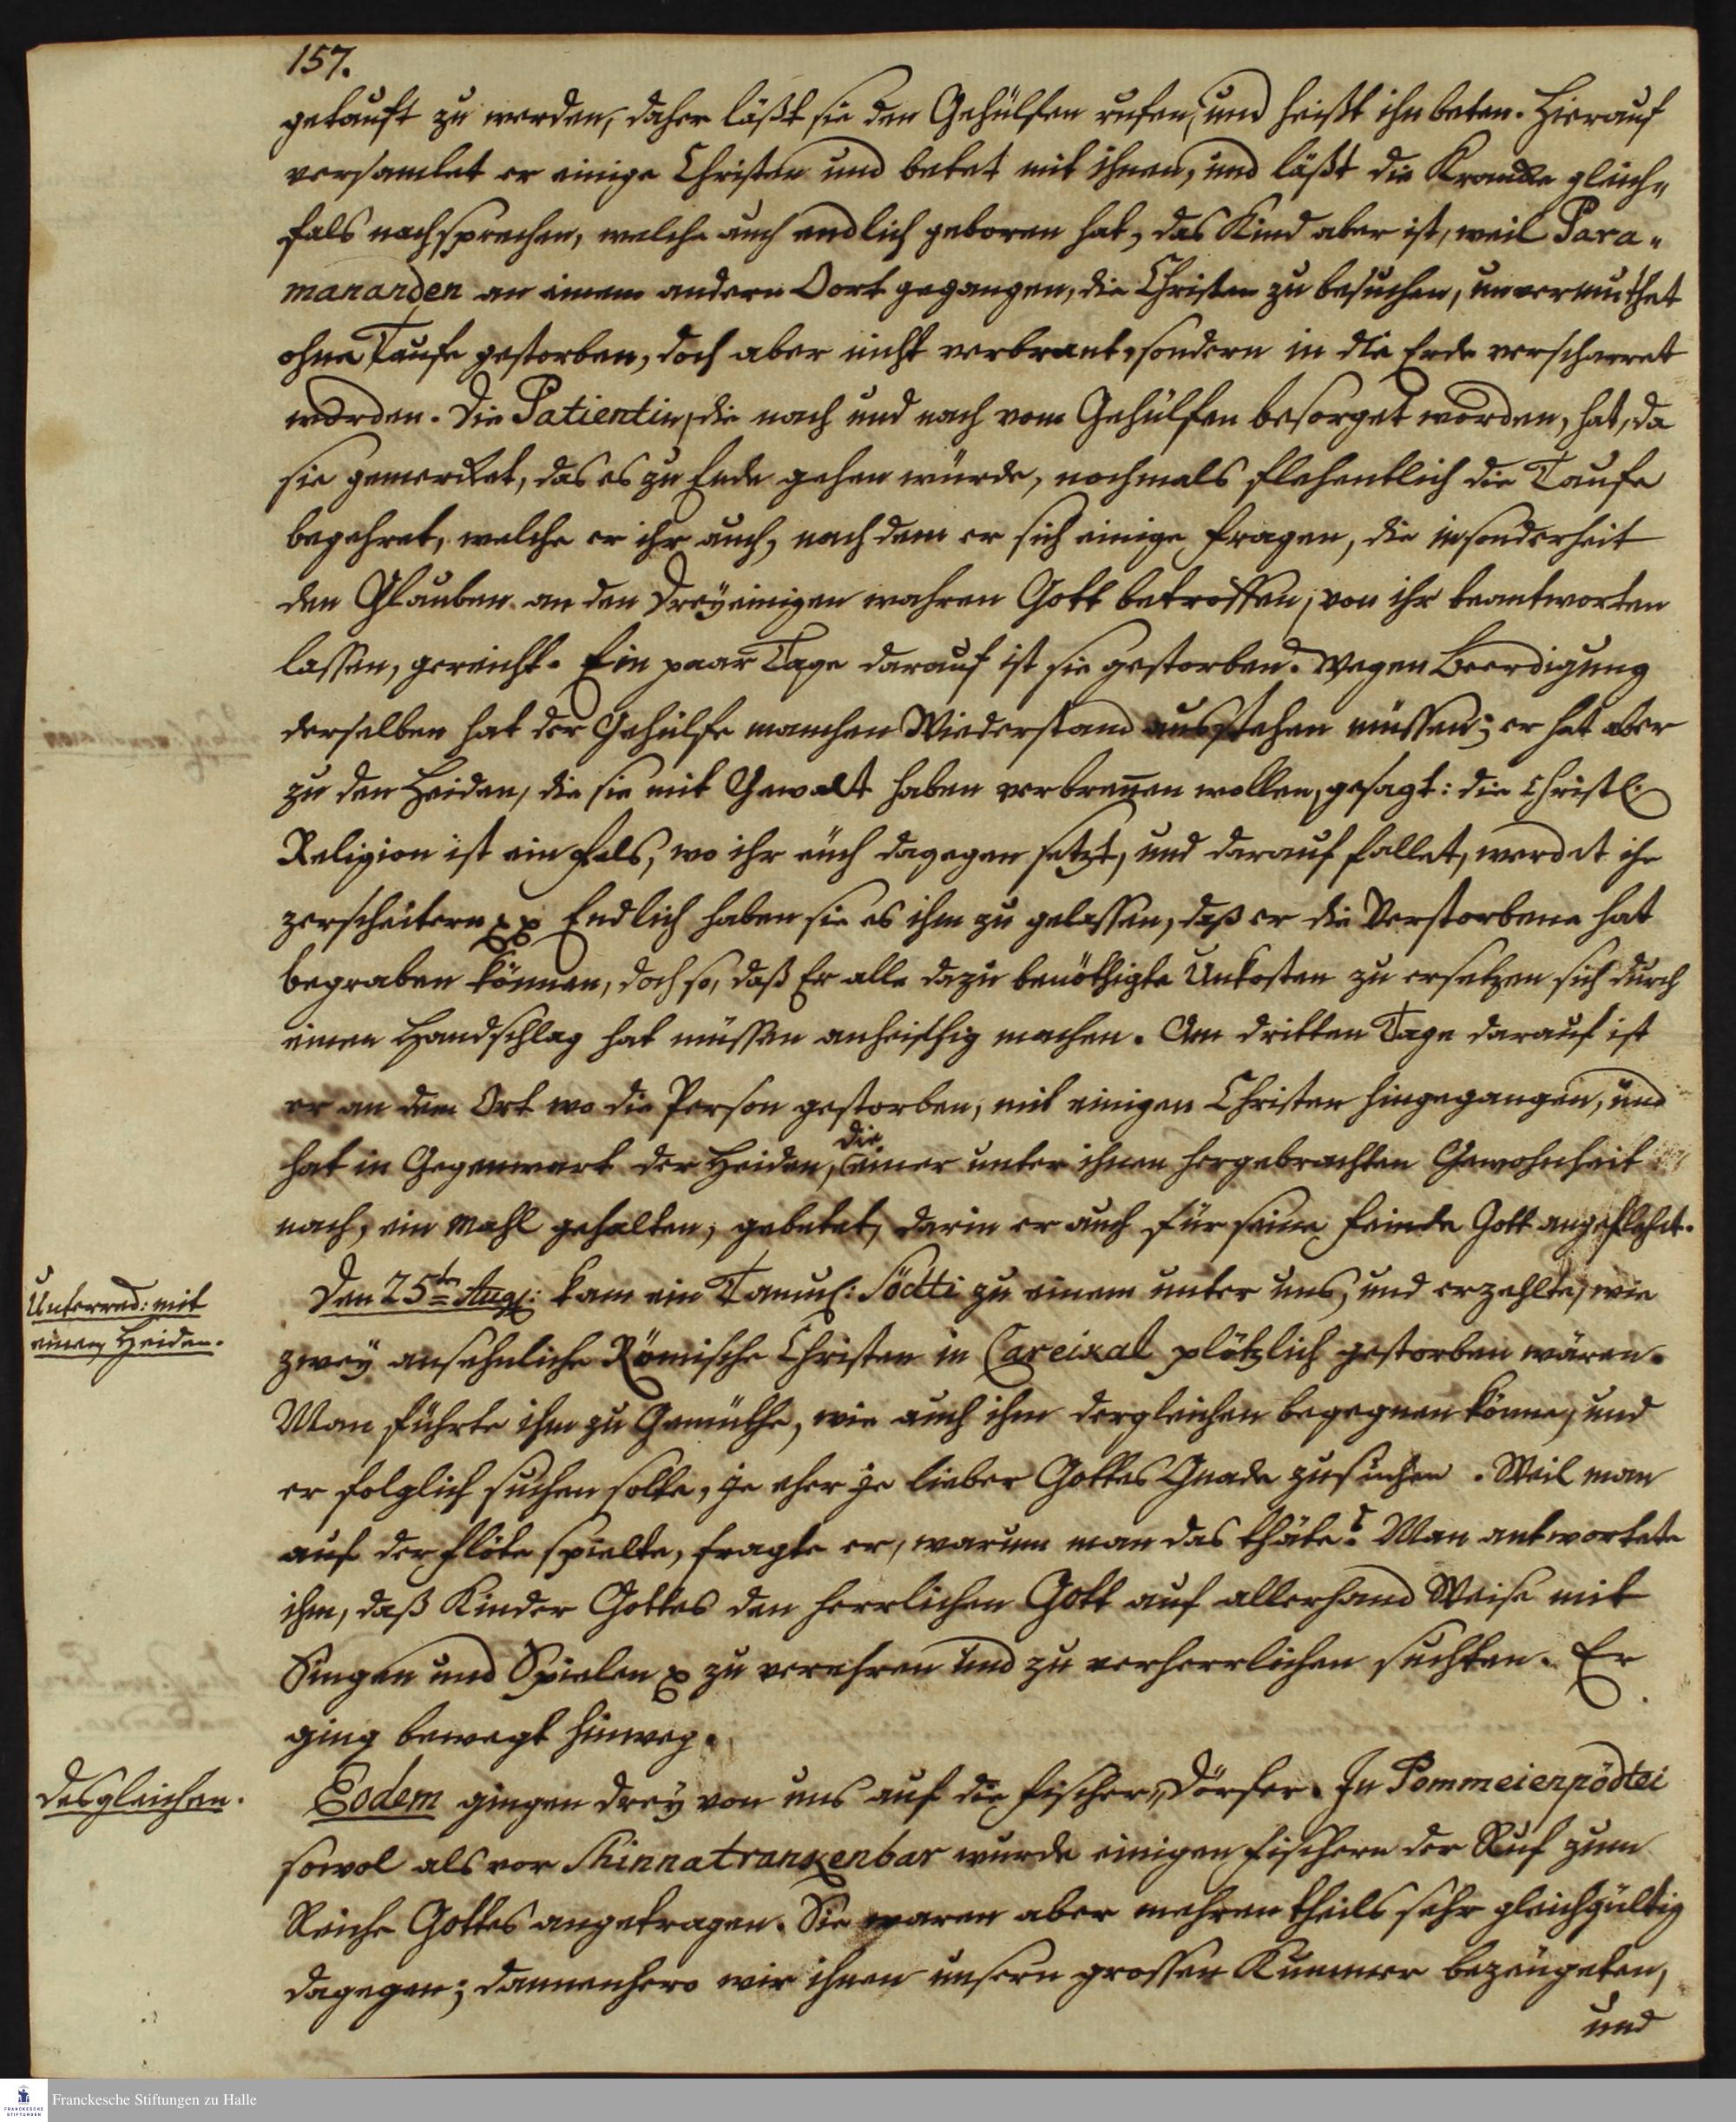 157.
getauft zu werden, daher läßt sie den Gehülfen rufen, und heißt ihn beten. Hierauf
versamlet er einige Christen und betet mit ihnen, und läßt die Krancke gleich„
fals nachsprechen, welche auch endlich geboren hat, das Kind aber ist, weil Para„
manarden an einem andern Oort gegangen, die Christen zu besuchen, unvermuthet
ohne Taufe gestorben, doch aber nicht verbrant, sondern in die Erde verscharret
worden. Die Patientin, die nach und nach vom Gehülfen besorget worden, hat, da
sie gemercket, das es zu Ende gehen würde, nochmals flehentlich die Taufe
begehret, welche er ihr auch, nach dem er sich einige Fragen, die insonderheit
den Glauben an den Dreyeinigen wahren Gott betroffen, von ihr beantworten
lassen, gereicht. Ein paar Tage darauf ist sie gestorben. Wegen Beerdigung
derselben hat der Gehülfe manchen Wiederstand ausstehen müssen; er hat aber
zu den Heiden, die sie mit Gewalt haben verbrenen wollen, gesagt: die Christl.
Religion ist ein Fels, wo ihr euch dagegen setzt, und darauf fallet, werdet ihr
zerscheitern pp Endlich haben sie es ihm zu gelassen, daß er die Verstorbene hat
begraben können, doch so, daß Er alle dazu benöthigte Unkosten zu ersetzen sich durch
einen Handschlag hat müssen anheischig machen. Am dritten Tage darauf ist
er an dem Ort wo die Person gestorben, mit einigen Christen hingegangen, und
hat in Gegenwart der Heiden, die einer unter ihnen hergebrachten Gewohnheit
nach, ein Mahl gehalten, gebetet, darin er auch für seine Feinde Gott angeflehet.
Unterred: mit
einem Heiden.
Den 25ten Aug: kam ein Tamul: Södti zu einem unter uns, und erzehlte, wie
zwey ansehnliche Römische Christen in Careikal plötzlich gestorben wären.
Man führte ihm zu Gemüthe, wie auch ihm dergleichen begegnen könne, und
er folglich suchen solte, je eher je lieber Gottes Gnade zu suchen. Weil man
auf der Flöte spielte, fragte er, warum man das thäte? Man antwortete
ihm, daß Kinder Gottes den herrlichen Gott auf allerhand Weise mit
Singen und Spielen p zu verehren und zu verherrlichen suchten. Er
ging bewegt hinweg.
desgleichen.
Eodem gingen drey von uns auf die Fischer„Dörfer. In Pommeienpödtei
sowol als vor Shinnatrankenbar wurde einigen Fischern der Ruf zum
Reiche Gottes angetragen. Sie waren aber mehrentheils sehr gleichgültig
dagegen; dannenhero wir ihnen unsern grossen Kummer bezeugeten,
und
Franckesche Stiftungen zu Halle